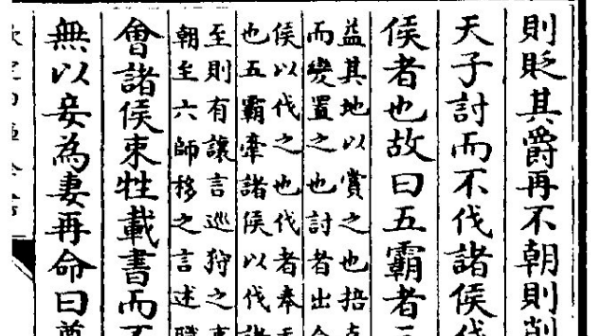 則貶其爵再不朝則削
天子討而不伐諸侯伐
侯者也故曰五霸者三
益其地以賞之也掊克
而變置之也討者出命
侯以伐之也伐者奉天
也五霸牽諸侯以伐諸
至則有讓言巡狩之事
朝至六師移之言述職
會諸侯束牲載書而不
無以妾為妻再命曰尊